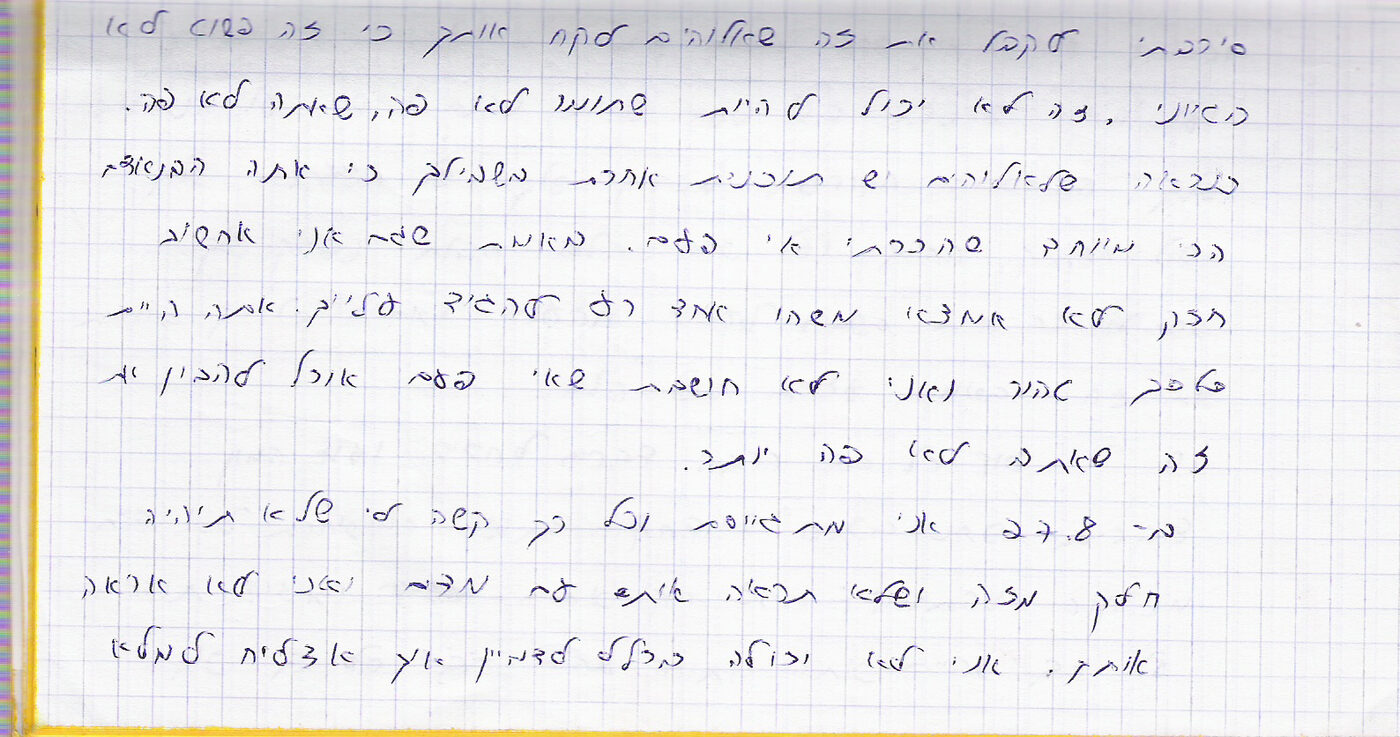 סירבתי לקבל את זה שאלוהים לקח אותך כי זה פשוט לא
הגיוני. זה לא יכול להיות שתומר לא פה, שאתה לא פה.
כנראה שלאלוהים יש תוכנית אחרת בשבילך כי אתה הבנאדם
הכי מיוחד שהכרתי אי פעם. באמת שגם אני אחשוב
חזק לא אמצא משהו אחד רע להגיד עלייך. אתה היית
כל כך טהור ואני לא חושבת שאי פעם אוכל להבין את
זה שאתה לא פה יותר.
ב- 27.8 אני מתגייסת וכל כך קשה לי שלא תיהיה
חלק מזה ושלא תראה אותי עם מדים ואני לא אראה
אותך. אני לא יכולה בכלל לדמיין איך אצליח למלא